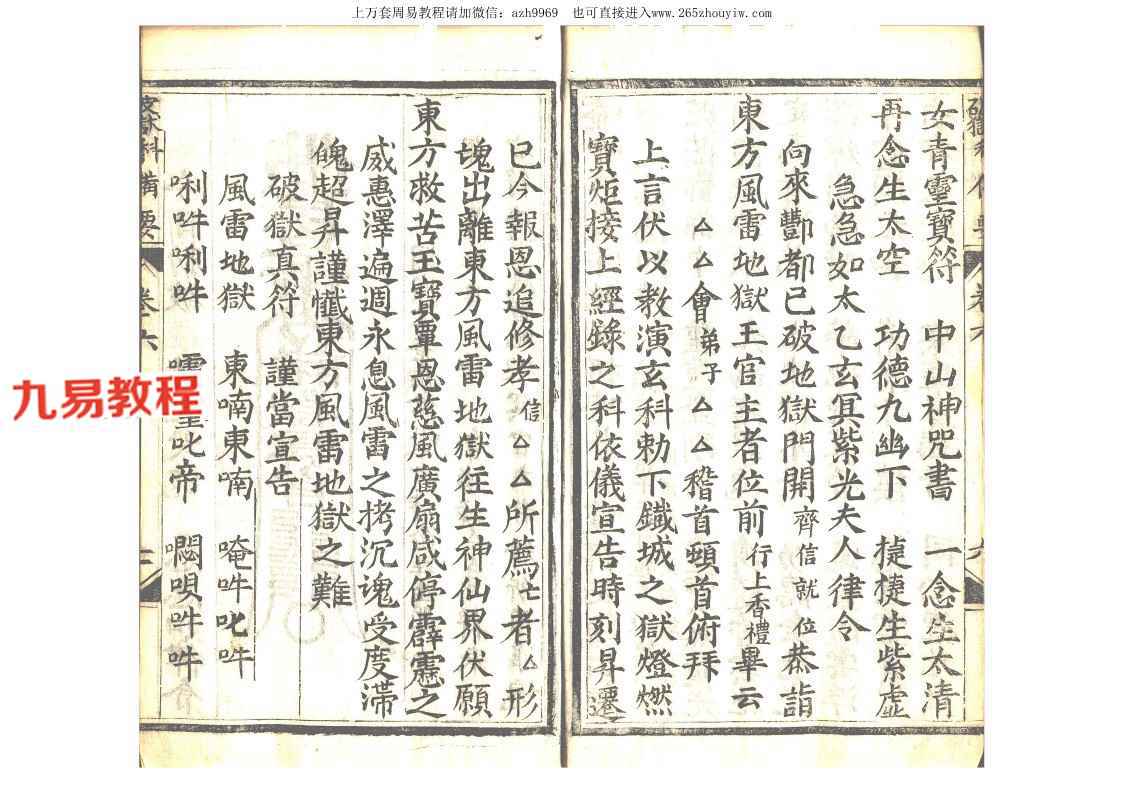 上万套周易教程请加微信：azh9969　也可直接进入www.265zhouyiw.com
女青靈寶符　中山神咒書　一念生太清
再念生太空　功德九幽下　捷捷生紫虛
急急如太乙玄冥紫光夫人律令
向來酆都已破地獄門開齊信就位恭詣
東方風雷地獄王官主者位前行上香禮畢云
△△會弟子△△稽首頓首俯拜
上言伏以教演玄科勅下鐵城之獄燈燃
寶炬接上經錄之科依儀宣告時刻昇遷
已今報恩追修孝信△△所薦亡者△形
塊出離東方風雷地獄往生神仙界伏願
東方救苦王寶覃恩慈風廣扇咸停霹靂之
威惠澤遍週永息風雷之拷沉魂受度滯
魄超昇謹懺東方風雷地獄之難
破獄真符　謹當宣告
風雷地獄　東喃東喃　唵吽叱吽
唎吽唎吽　叱帝　㘕唄吽吽
卷六
九易教程